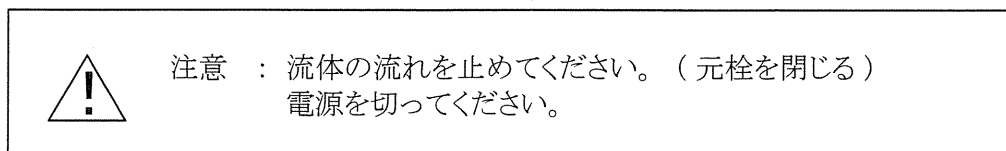 注意 : 流体の流れを止めてください。 ( 元栓を閉じる )
電源を切ってください。